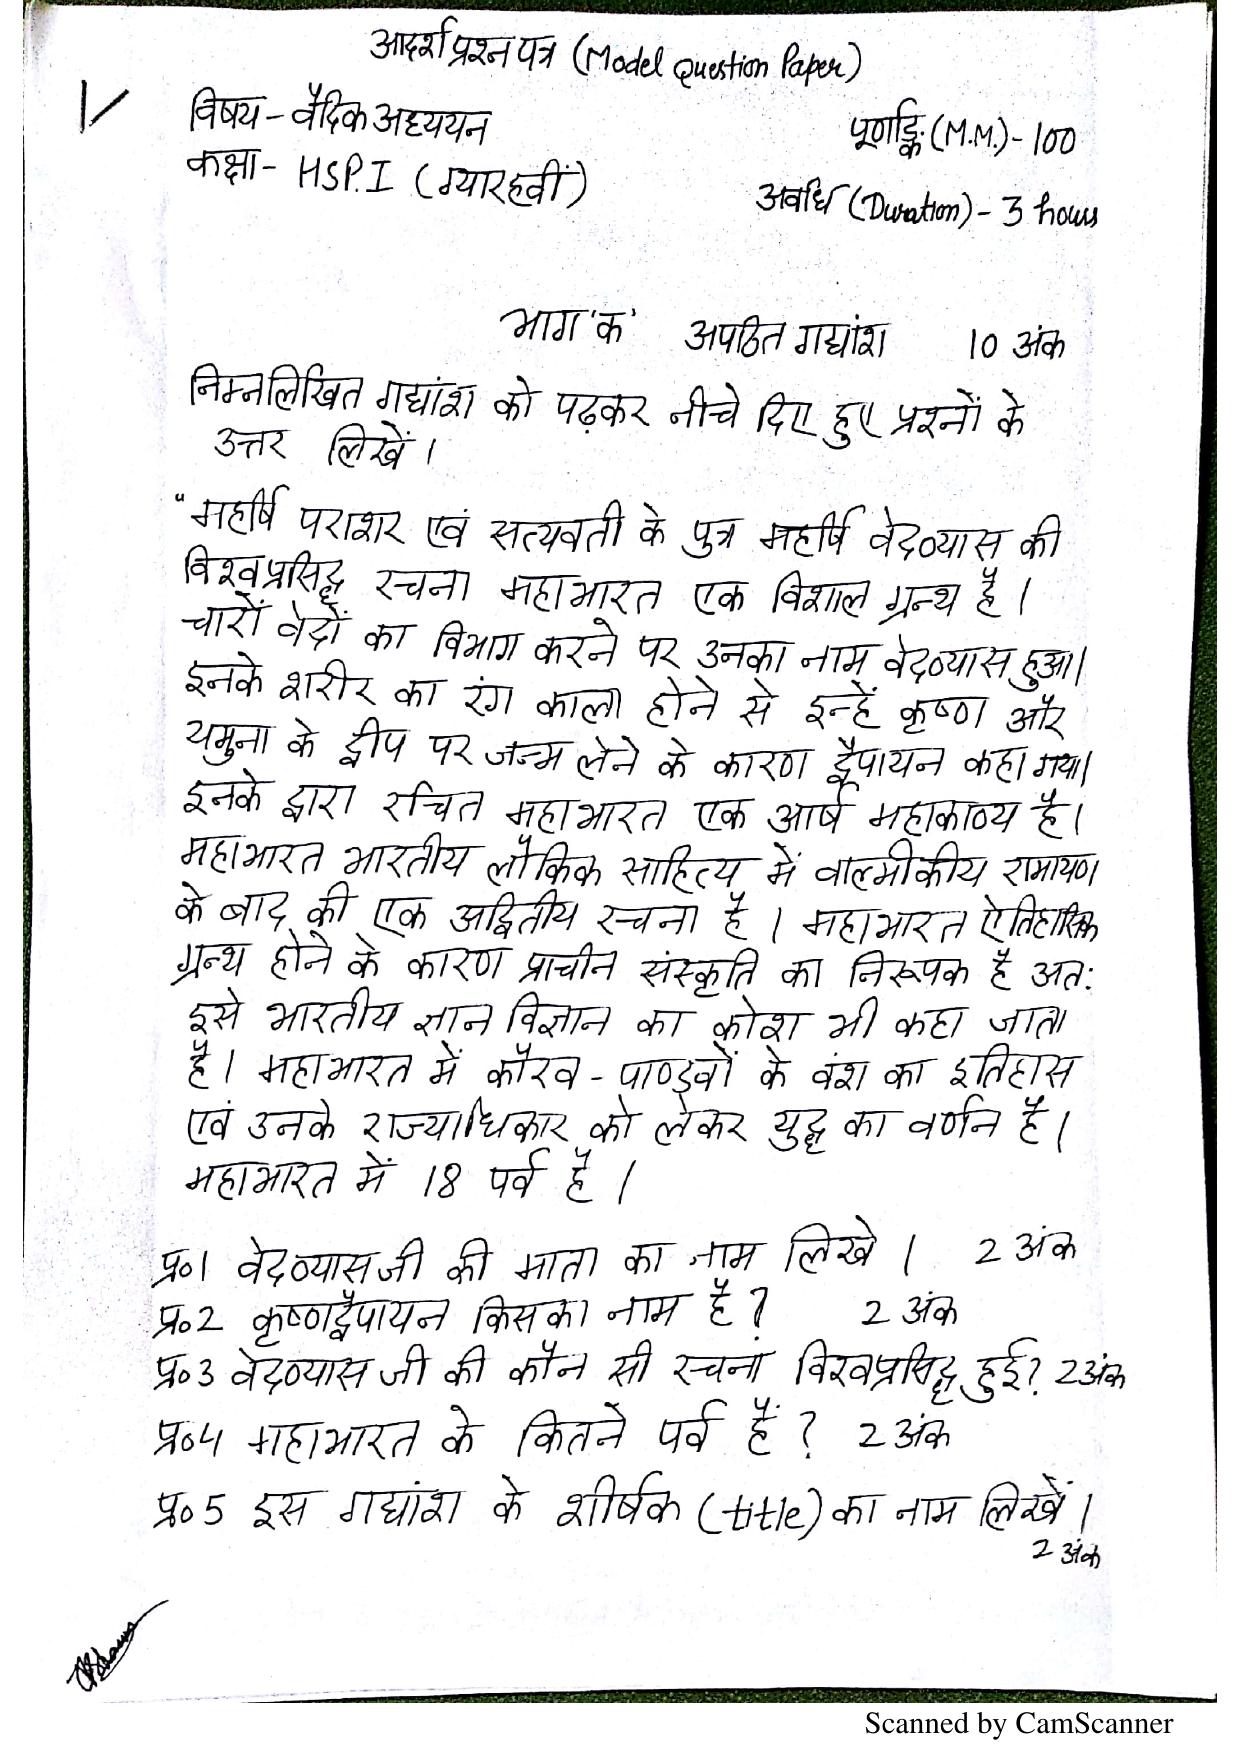 आदर्श प्रश्न पत्र (Model Question Paper)
1/
विषय - वैदिक अध्ययन
पूर्णाङ्क (M.M.) - 100
कक्षा - HSP.I (ग्यारहवीं)
अवधि (Duration) - 3 hours
भाग 'क' अपठित गद्यांश 10 अंक
निम्नलिखित गद्यांश को पढ़कर नीचे दिए हुए प्रश्नों के
उत्तर लिखें।
"महर्षि पराशर एवं सत्यवती के पुत्र महर्षि वेदव्यास की
विश्वप्रसिद्ध रचना महाभारत एक विशाल ग्रन्थ है।
चारों वेदों का विभाग करने पर उनका नाम वेदव्यास हुआ।
इनके शरीर का रंग काला होने से इन्हें कृष्ण और
यमुना के द्वीप पर जन्म लेने के कारण द्वैपायन कहा गया।
इनके द्वारा रचित महाभारत एक आर्ष महाकाव्य है।
महाभारत भारतीय लौकिक साहित्य में वाल्मीकीय रामायण
के बाद की एक अद्वितीय रचना है। महाभारत ऐतिहासिक
ग्रन्थ होने के कारण प्राचीन संस्कृति का निरूपक है अतः
इसे भारतीय ज्ञान विज्ञान का कोश भी कहा जाता
है। महाभारत में कौरव - पाण्डवों के वंश का इतिहास
एवं उनके राज्याधिकार को लेकर युद्ध का वर्णन है।
महाभारत में 18 पर्व है।
प्र॰1 वेदव्यास जी की माता का नाम लिखे। 2 अंक
प्र॰2 कृष्णद्वैपायन किसका नाम है? 2 अंक
प्र॰3 वेदव्यास जी की कौन सी रचना विश्वप्रसिद्ध हुई? 2 अंक
प्र॰4 महाभारत के कितने पर्व हैं? 2 अंक
प्र॰5 इस गद्यांश के शीर्षक (title) का नाम लिखें।
2 अंक
Scanned by CamScanner